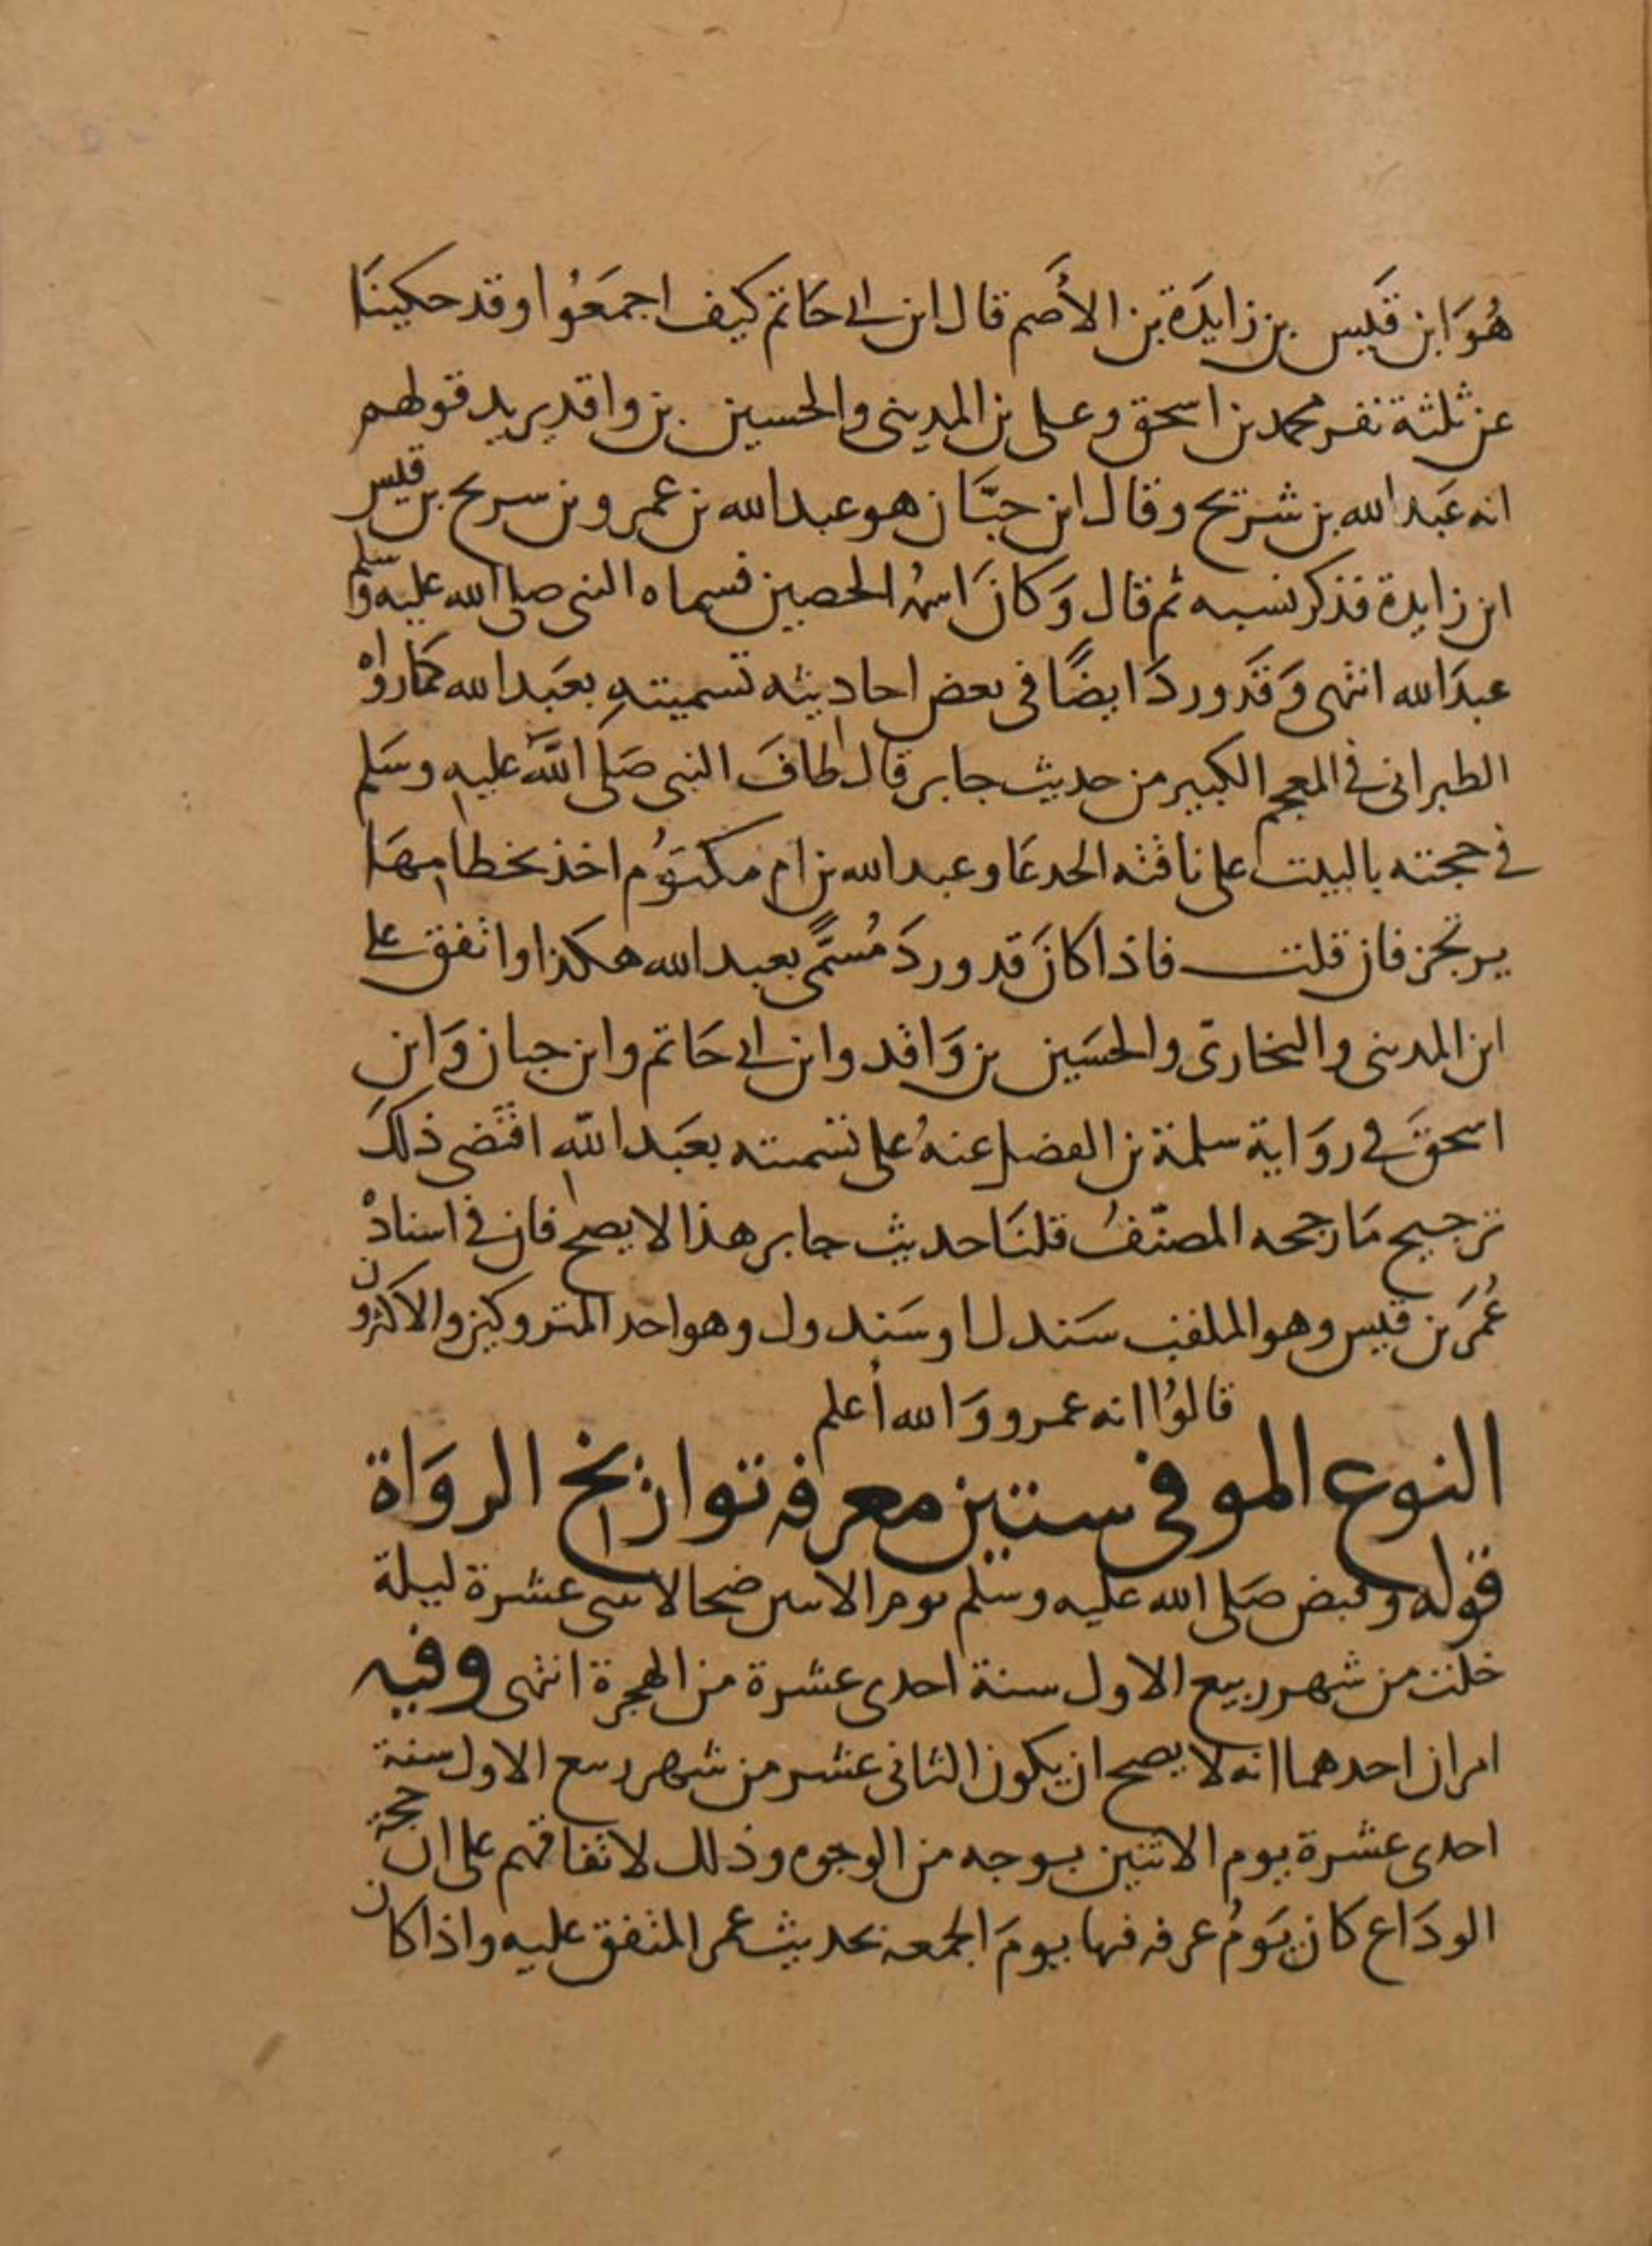 هُوَ ابن قَيس بن زايدَة بن الأصَم قال ابن ابى حَاتم كيف اجمَعُوا وقد حكينَا
عن ثلثة نفر محمد بن اسحق وعلى بن المدينى والحسين بن واقد يريد قولهم
انه عَبد الله بن شريح وقال ابن حبَّان هو عبد الله بن عمرو بن سريح بن قيس
ابن زايدة فذكر نسبه ثم قال وَكانَ اسمُه الحصين فسماه النبى صلى الله عليه وسلم
عبدَ الله انتهى وَقَد وردَ ايضًا فى بعض احاديثه تسميتهِ بعَبد الله كمَا رواه
الطبرانى فى المعجم الكبير من حديث جابر قال طافَ النبى صَلى اللهَّ عليه وسَلم
فى حجته بالبيت على ناقته الجدعَا وعبد الله بن ام مكتوُم اخذ بخطامهَا
يرتجز فان قلت فاذا كانَ قد وردَ مُسَمًّى بعبد الله هكذا واتفق على
ابن المدينى والبخارىّ والحسَين بن وَاقد وابن ابى حَاتم وابن حبان وَابنِ
اسحقَ فى روَاية سلمة بن الفضل عنهُ على تسميته بعَبد اللّه اقتَضى ذلكَ
ترجيح مَا رجحه المصنّفُ قلنَا حديث جابر هذا لا يصح فان فى اسنادهْ
عُمَر بن قيس وهو الملقب سَندلا وسَندول وهو احد المتروكين والاكثرون
قالوُا انه عمرو وَالله أعلم
النوع الموفى ستين معرفة تواريخ الروَاة
قوله وقبض صَلى الله عليه وسَلم يوم الاثنين ضحا لاثنتى عشرة ليلة
خلت من شهر ربيع الاول سنة احدى عشرة من الهجرة انتهى وفيه
امران احدهما انه لا يصح ان يكون الثانى عشر من شهر ربيع الاول سنة
احدى عشرة يوم الاثنين بوجه من الوجوه وذلك لاتفاقهم على ان حجة
الودَاع كان يَومُ عرفة فيها يومَ الجمعة بحديث عمر المتفق عليه واذا كان